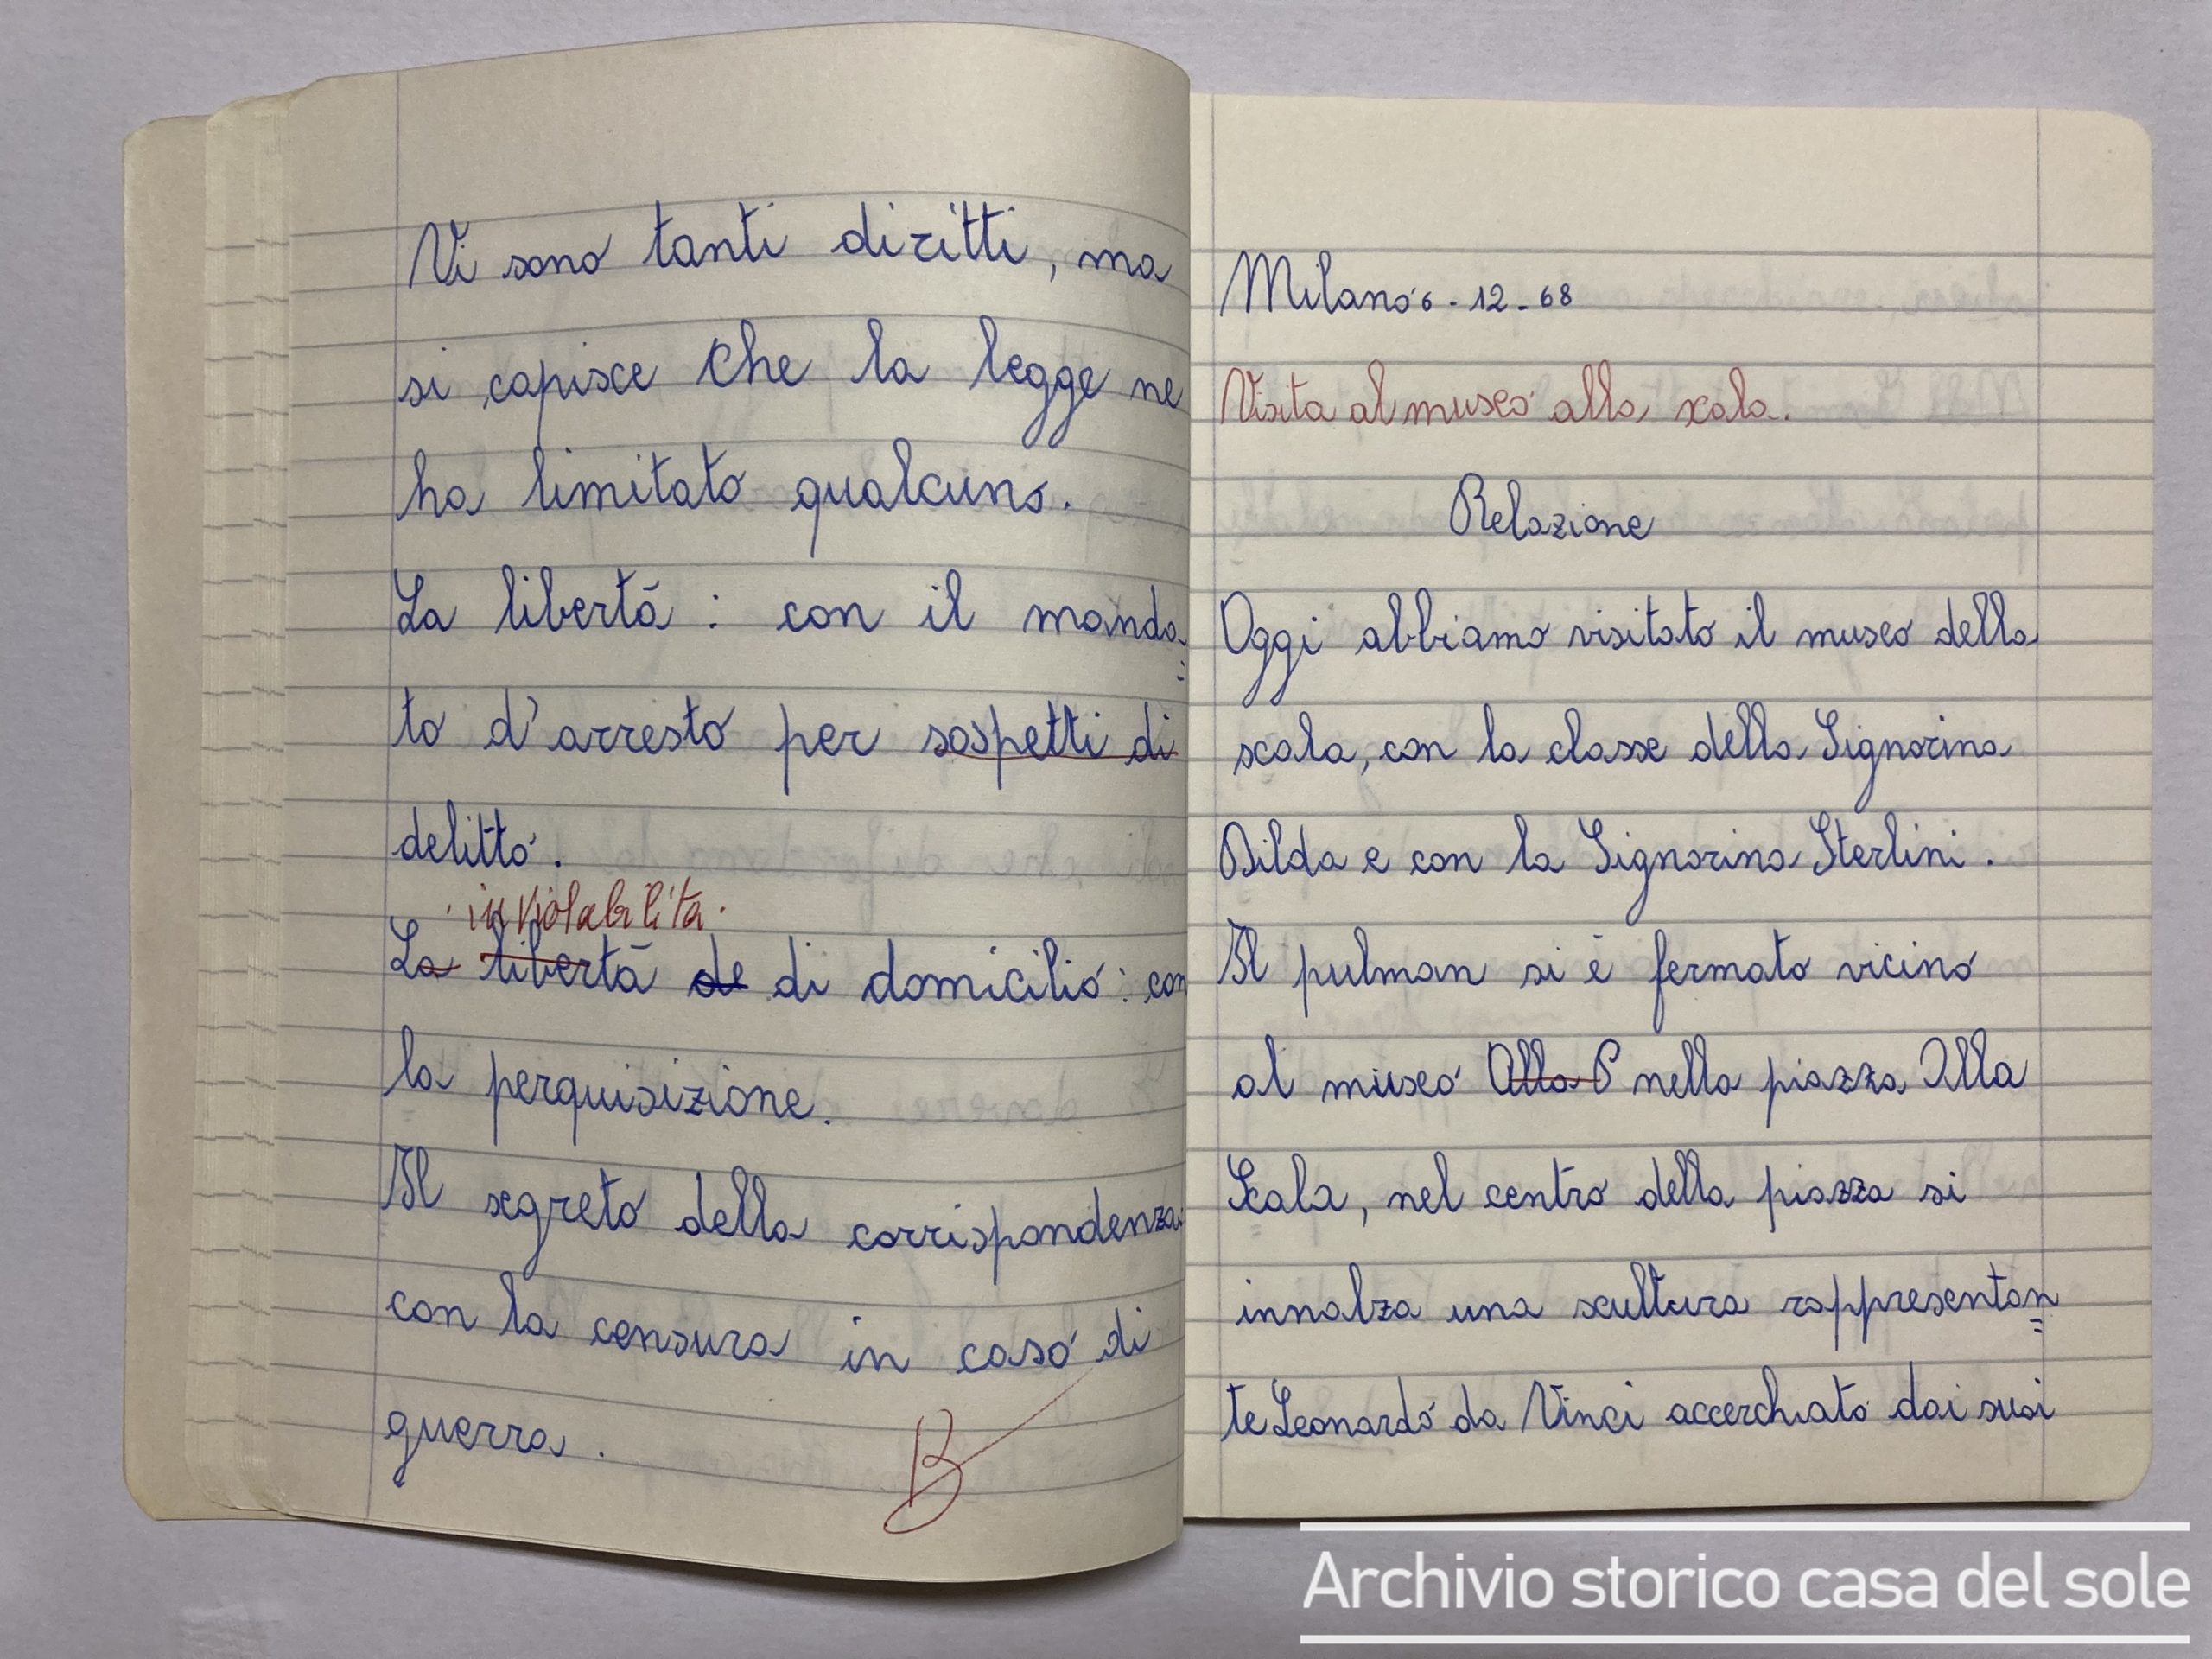 Vi sono tanti diritti, ma
si capisce che la legge ne
ha limitato qualcuno.
La libertà : con il manda=
to d'arresto per sospetti di
delitto.
inviolabilità
La libertà de di domicilio : con
la perquisizione.
Il segreto della corrispondenza:
con la censura in caso di
guerra.
B
Milano 6-12-68
Visita al museo alla scala.
Relazione
Oggi abbiamo visitato il museo della
scala, con la classe della Signorina
Bilda e con la Signorina Sterlini.
Il pulman si è fermato vicino
al museo Alla P nella piazza Alla
Scala, nel centro della piazza si
innalza una scultura rappresentan=
te Leonardo da Vinci accerchiato dai suoi
Archivio storico casa del sole